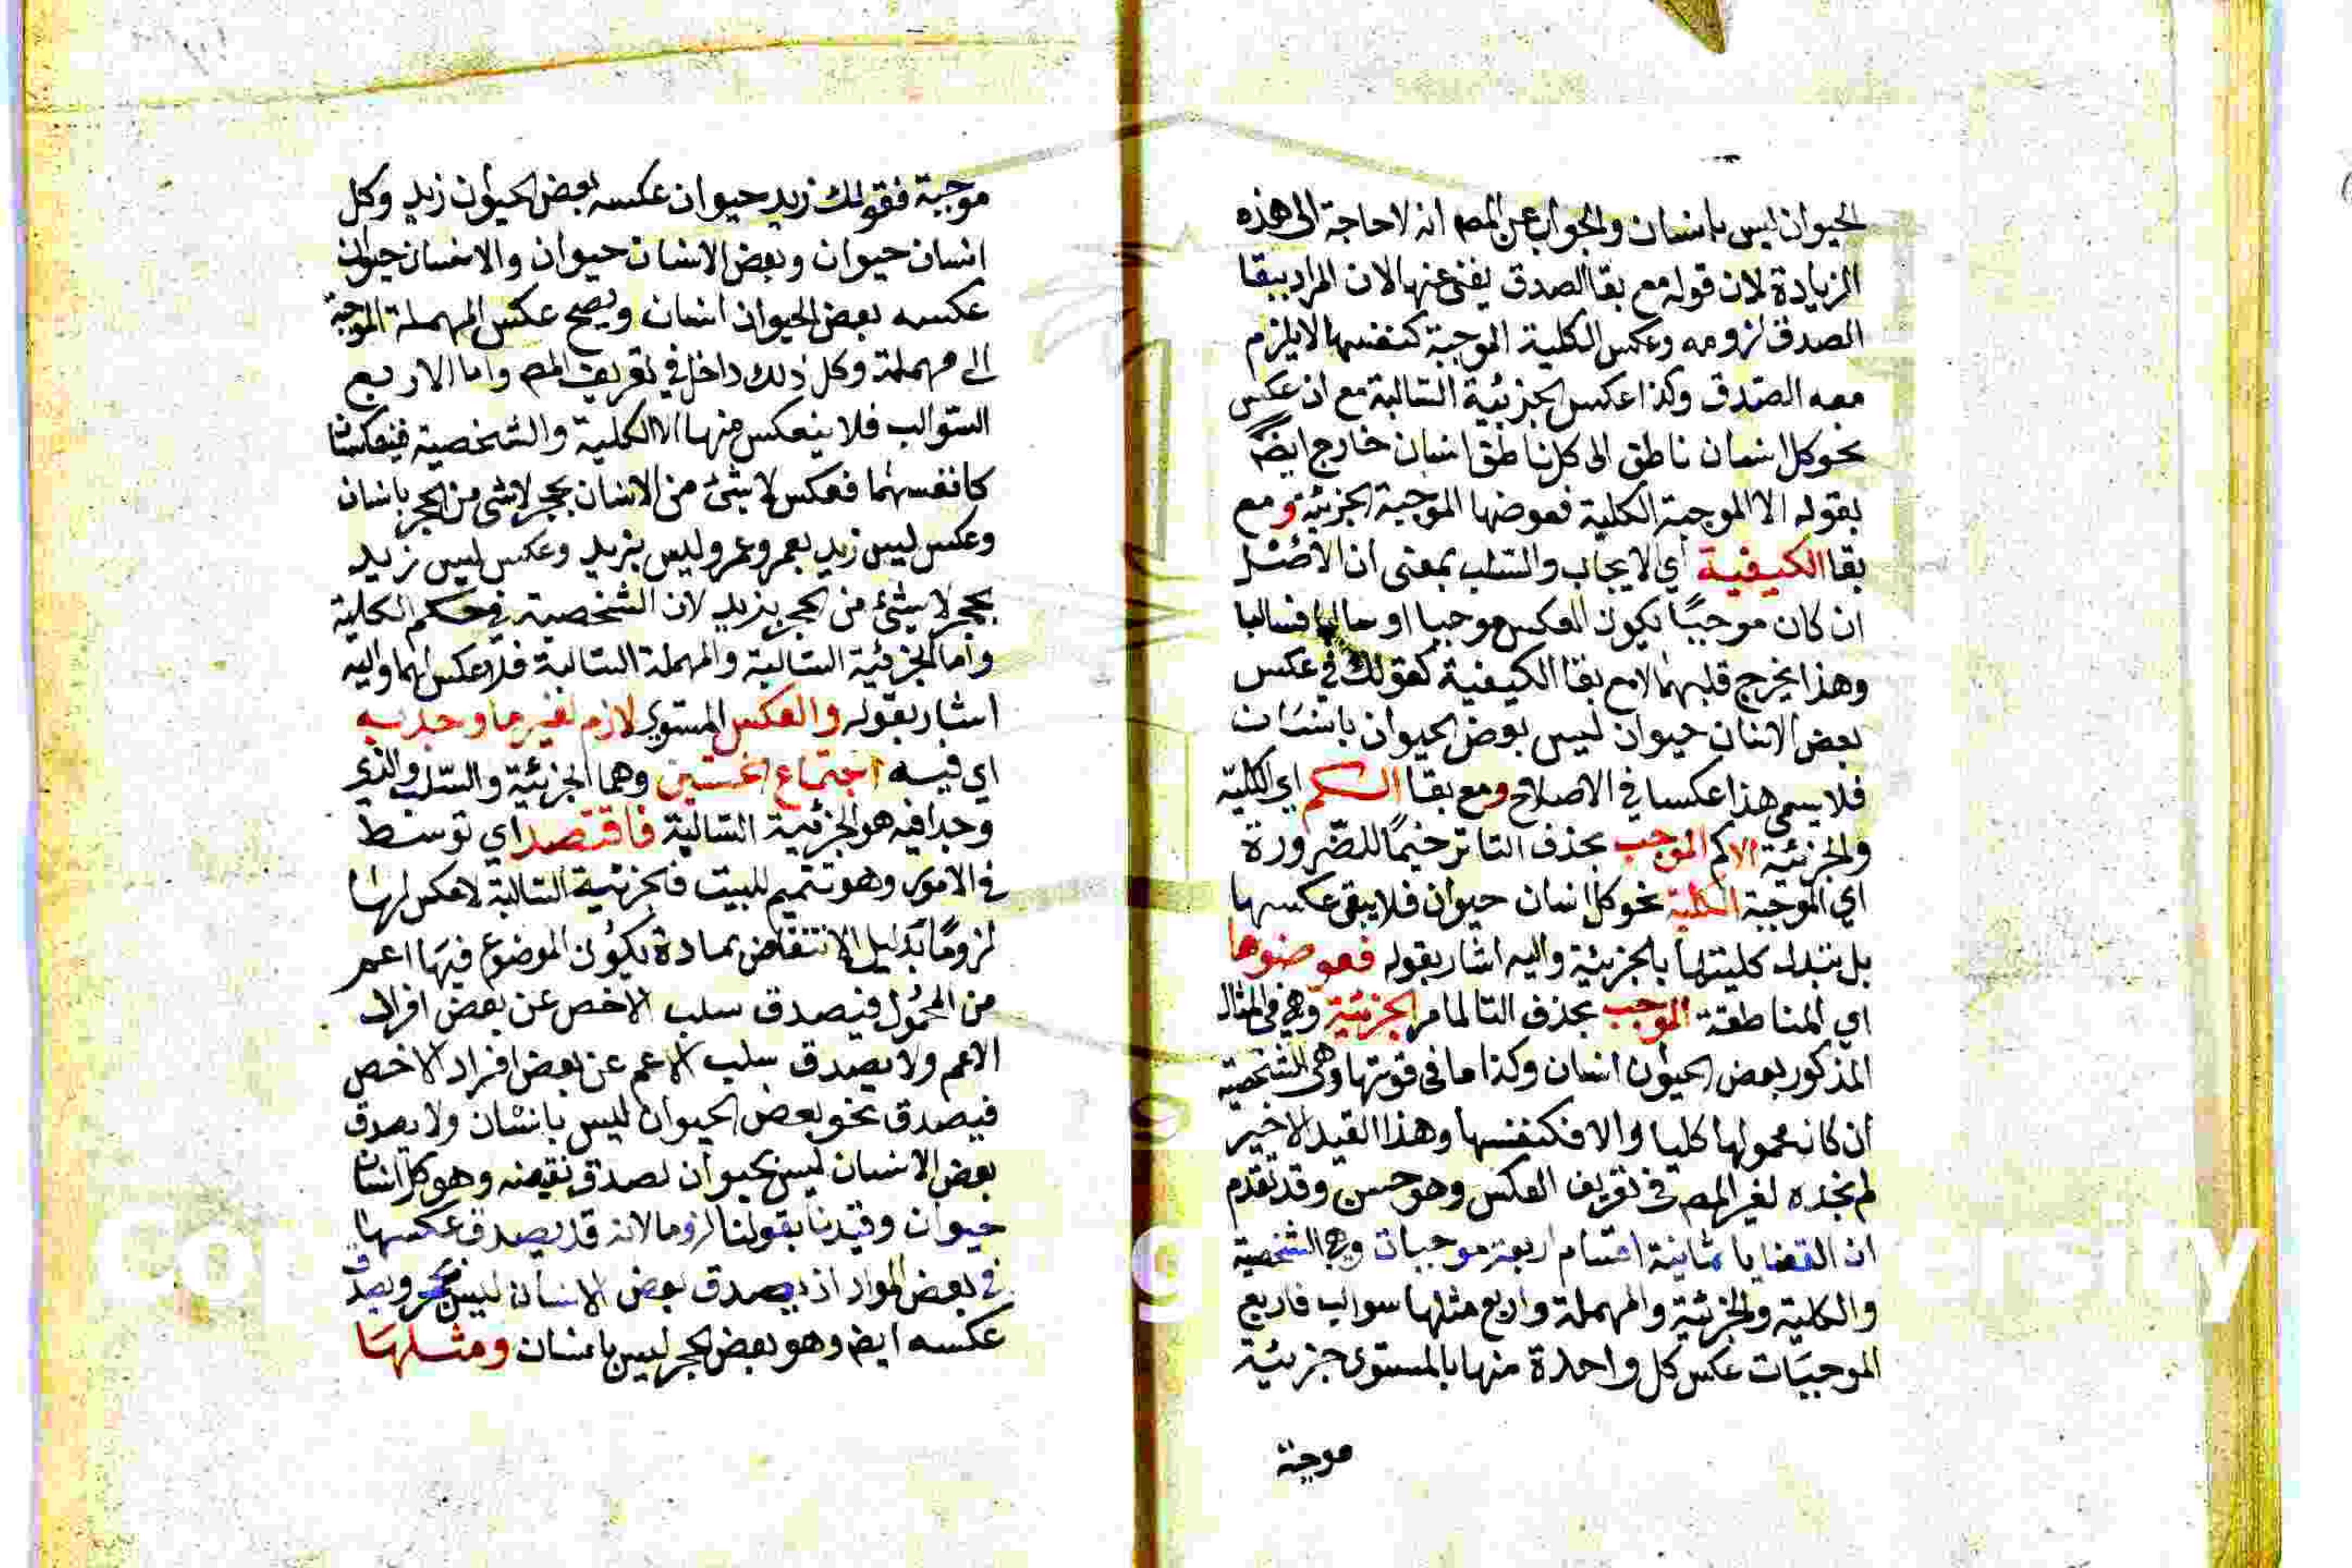 الحيوان ليس بانسان والجواب عن المص انه لا حاجة الى هذه
الزيادة لان قوله مع بقا الصدق يغني عنها لان المراد ببقا
الصدق لزومه وعكس الكلية الموجبة كنفسها لا يلزم
معه الصدق وكذا عكس الجزئية السالبة مع ان عكس
نحو كل انسان ناطق الى كل ناطق انسان خارج ايض
بقوله الا الموجبة الكلية فعوضها الموجبة الجزئية ومع
بقا الكيفية اي الايجاب والسلب بمعنى ان الاصل
ان كان موجبًا يكون العكس موجبا او سالبا فسالبا
وهذا يخرج قلبهما لا مع بقا الكيفية كقولك في عكس
بعض الانسان حيوان ليس بعض الحيوان بانسان
فلا يسمى هذا عكسا في الاصلاح ومع بقا الكم اي الكلية
والجزئية الا كم الموجب بحذف التا ترخيمًا للضرورة
اي الموجبة الكلية نحو كل انسان حيوان فلا يبقى عكسها
بل يتبدل كليتها بالجزئية واليه اشار بقوله فعوضوها
اي المناطقة الموجب بحذف التا لما مر الجزئية وهي في المثال
المذكور بعض الحيوان انسان وكذا ما في قوتها وهي الشخصية
ان كانه محمولها كليا والا فكنفسها وهذا القيد الاخير
لم نجده لغير المص في تعريف العكس وهو حسن وقد تقدم
ان القضايا ثمانية اقسام اربعة موجبات وهي الشخصية
والكلية والجزئية والمهملة واربع مثلها سوالب فاربع
الموجبات عكس كل واحدة منها بالمستوى جزئية
موجبة
موجبة فقولك زيد حيوان عكسه بعض الحيوان زيد وكل
انسان حيوان وبعض الانسان حيوان والانسان حيوان
عكسه بعض الحيوان انسان ويصح عكس المهملة الموجبة
الى مهملة وكل ذلك داخل في تعريف المص واما الاربع
السوالب فلا ينعكس منها الا الكلية والشخصية فينعكسا
كانفسهما فعكس لا شئ من الانسان بحجر لا شى من الحجر بانسان
وعكس ليس زيد بعمرو عمرو ليس بزيد وعكس ليس زيد
بحجر لا شئ من الحجر بزيد لان الشخصية في حكم الكلية
واما الجزئية السالبة والمهملة السالبة فلا عكس لهما واليه
اشار بقوله والعكس المستوى لازم لغير ما وجد به
اي فيه اجتماع الخستين وهما الجزئية والسلب والذي
وجدا فيه هو الجزئية السالبة فاقتصد اي توسط
في الامور وهو تتميم للبيت فالجزئية السالبة لا عكس لها
لزومًا بدليل الانتقاض بمادة يكون الموضوع فيها اعم
من المحمول فيصدق سلب الاخص عن بعض افراد
الاعم ولا يصدق سلب الاعم عن بعض افراد الاخص
فيصدق نحو بعض الحيوان ليس بانسان ولا يصدق
بعض الانسان ليس بحيوان لصدق نقيضه وهو كل انسان
حيوان وقيدنا بقولنا لزوما لانه قد يصدق عكسها
في بعض المواد اذ يصدق بعض الانسان ليس بحجر ويصدق
عكسه ايض وهو بعض الحجر ليس بانسان ومثلها